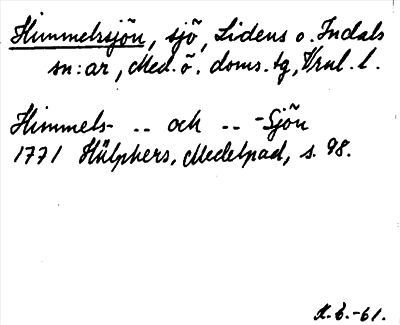 Himmelssjön, sjö, Lidens o. Indals
sn:ar, Med. ö. doms. tg, Vrnl. l.
Himmels- .. och .. -Sjön
1771 Hülphers, Medelpad, s. 98.
-61.